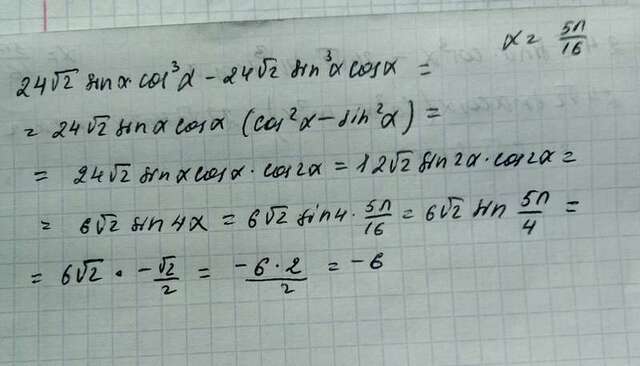 α = 5π/16
24√2 sinα·cos³α − 24√2 sin³α cosα =
= 24√2 sinα cosα (cos²α − sin²α) =
= 24√2 sinα cosα · cos2α = 12√2 sin2α · cos2α =
= 6√2 sin4α = 6√2 sin4 · 5π/16 = 6√2 sin 5π/4 =
= 6√2 · −√2/2 = −6·2/2 = −6